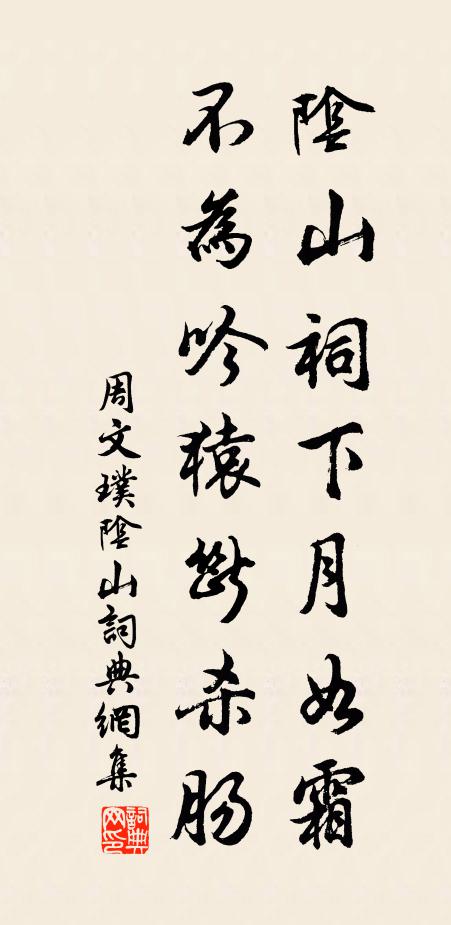 陰山祠下月如霜
不為吟猿斷杀肠
周文璞陰山詞典網集
詞典網印